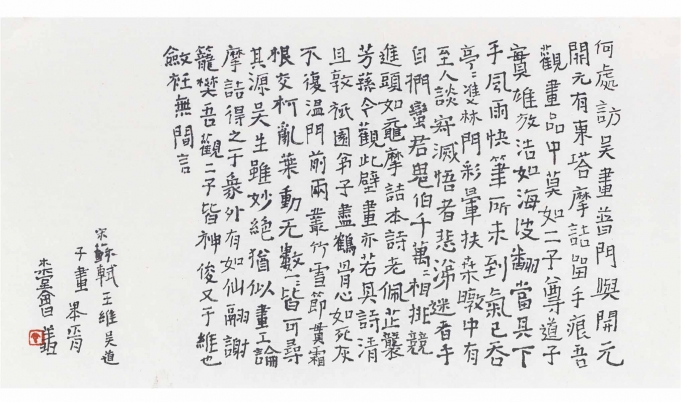 何處訪吳畫普門與開元
開元有東塔摩詰留手痕吾
觀畫品中莫如二子尊道子
實雄放浩如海波翻當其下
手風雨快筆所未到氣已吞
亭〻雙林門彩暈扶桑暾中有
至人談寂滅悟者悲涕迷者手
自捫蠻君鬼伯千萬〻相排競
進頭如黿摩詰本詩老佩芷襲
芳蓀今觀此壁畫亦若其詩清
且敦祇園弟子盡鶴骨心如死灰
不復温門前兩叢竹雪節貫霜
根交柯亂葉動无數一一皆可尋
其源吳生雖妙絕猶似畫工論
摩詰得之于象外有如仙翮謝
籠樊吾觀二子皆神俊又于維也
斂衽無間言
宋蘇軾王維吳道
子畫